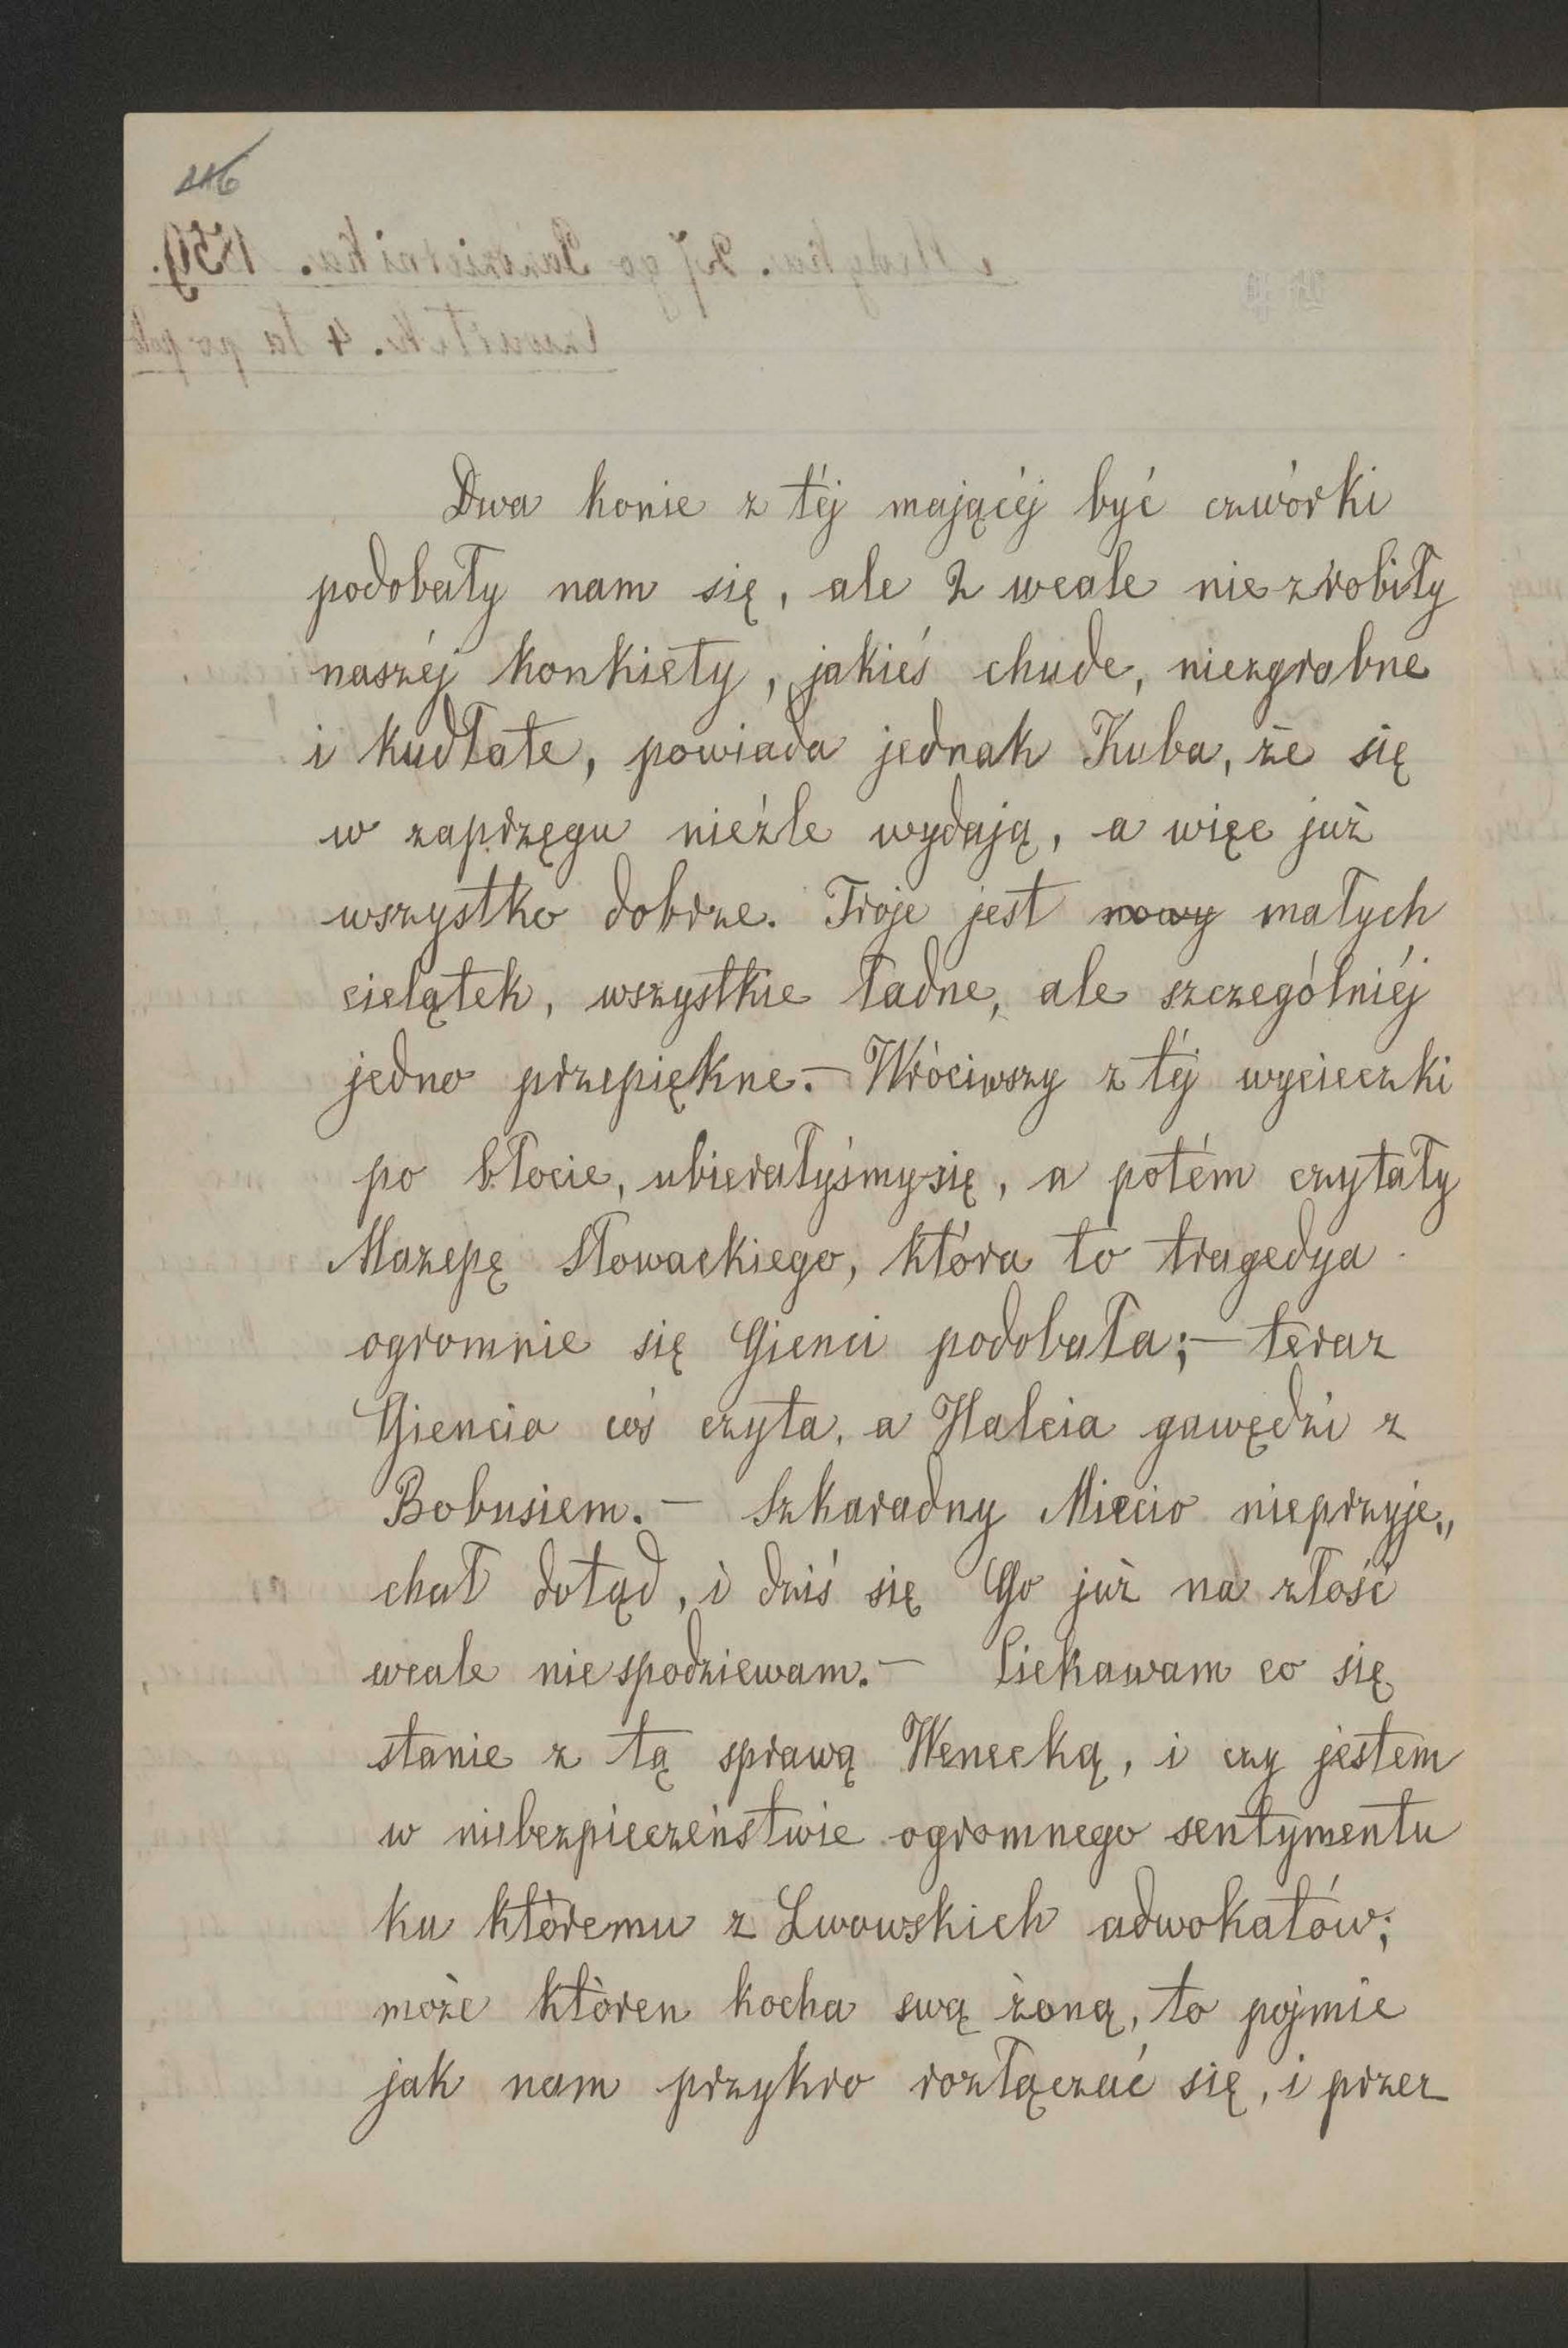 116
Dwa konie z téj mającéj być czwórki
podobały nam się, ale 2 wcale nie zrobiły
naszéj konkiety, jakieś chude, niezgrabne
i kudłate, powiada jednak Kuba, że się
w zaprzęgu nieźle wydają, a więc już
wszystko dobrze. Troje jest nowy małych
cielątek, wszystkie ładne, ale szczególniéj
jedno przepiękne.— Wróciwszy z téj wycieczki
po błocie, ubierałyśmy się, a potém czytały
Mazepę Słowackiego, która to tragedya
ogromnie się Gienci podobała;— teraz
Giencia coś czyta, a Halcia gawędzi z
Bobusiem.— Szkaradny Miecio nieprzyje„
chał dotąd, i dziś się Go już na złość
wcale nie spodziewam.— Ciekawam co się
stanie z tą sprawą Wenecką, i czy jestem
w niebezpieczeństwie ogromnego sentymentu
ku któremu z Lwowskich adwokatów;
może któren kocha swą żoną, to pojmie
jak nam przykro rozłączać się, i przez